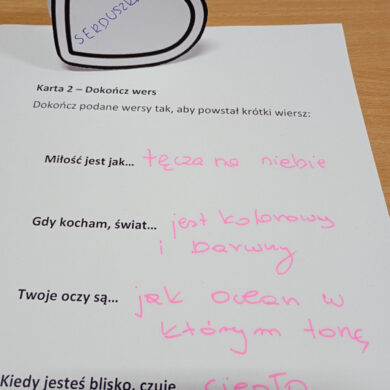 SERDUSZK
Karta 2 – Dokończ wers
Dokończ podane wersy tak, aby powstał krótki wiersz:
Miłość jest jak... tęcza na niebie
Gdy kocham, świat... jest kolorowy
i barwny
Twoje oczy są... jak ocean w
którym tonę
Kiedy jesteś blisko, czuję ciepło